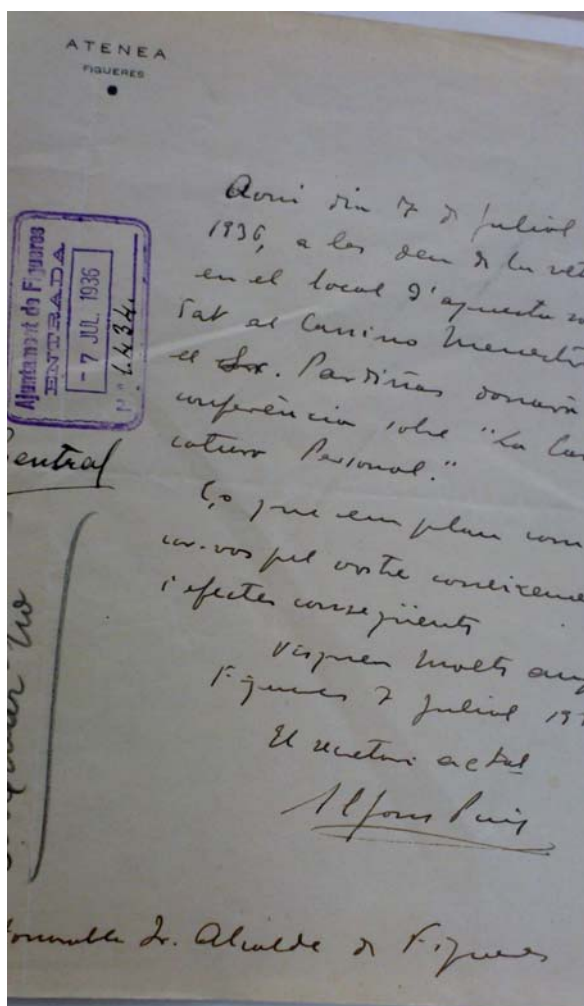 ATENEA
FIGUERES
Ajuntament de Figueres
ENTRADA
-7 JUL. 1936
Nº 1.434.
Avui dia 7 de juliol
1936, a les deu de la vet
en el local d'aquesta
tat al Cassino Menestr
el Sr. Pardiñas donarà
conferència sobre "La Car
catura Personal."
Ço que em plau com
car-vos pel vostre coneixeme
i efectes consegüents
Visqueu molts any
Figueres 7 juliol 19
El secretari actal
Alfons Puig
entral
Honorable Sr. Alcalde de Figueres